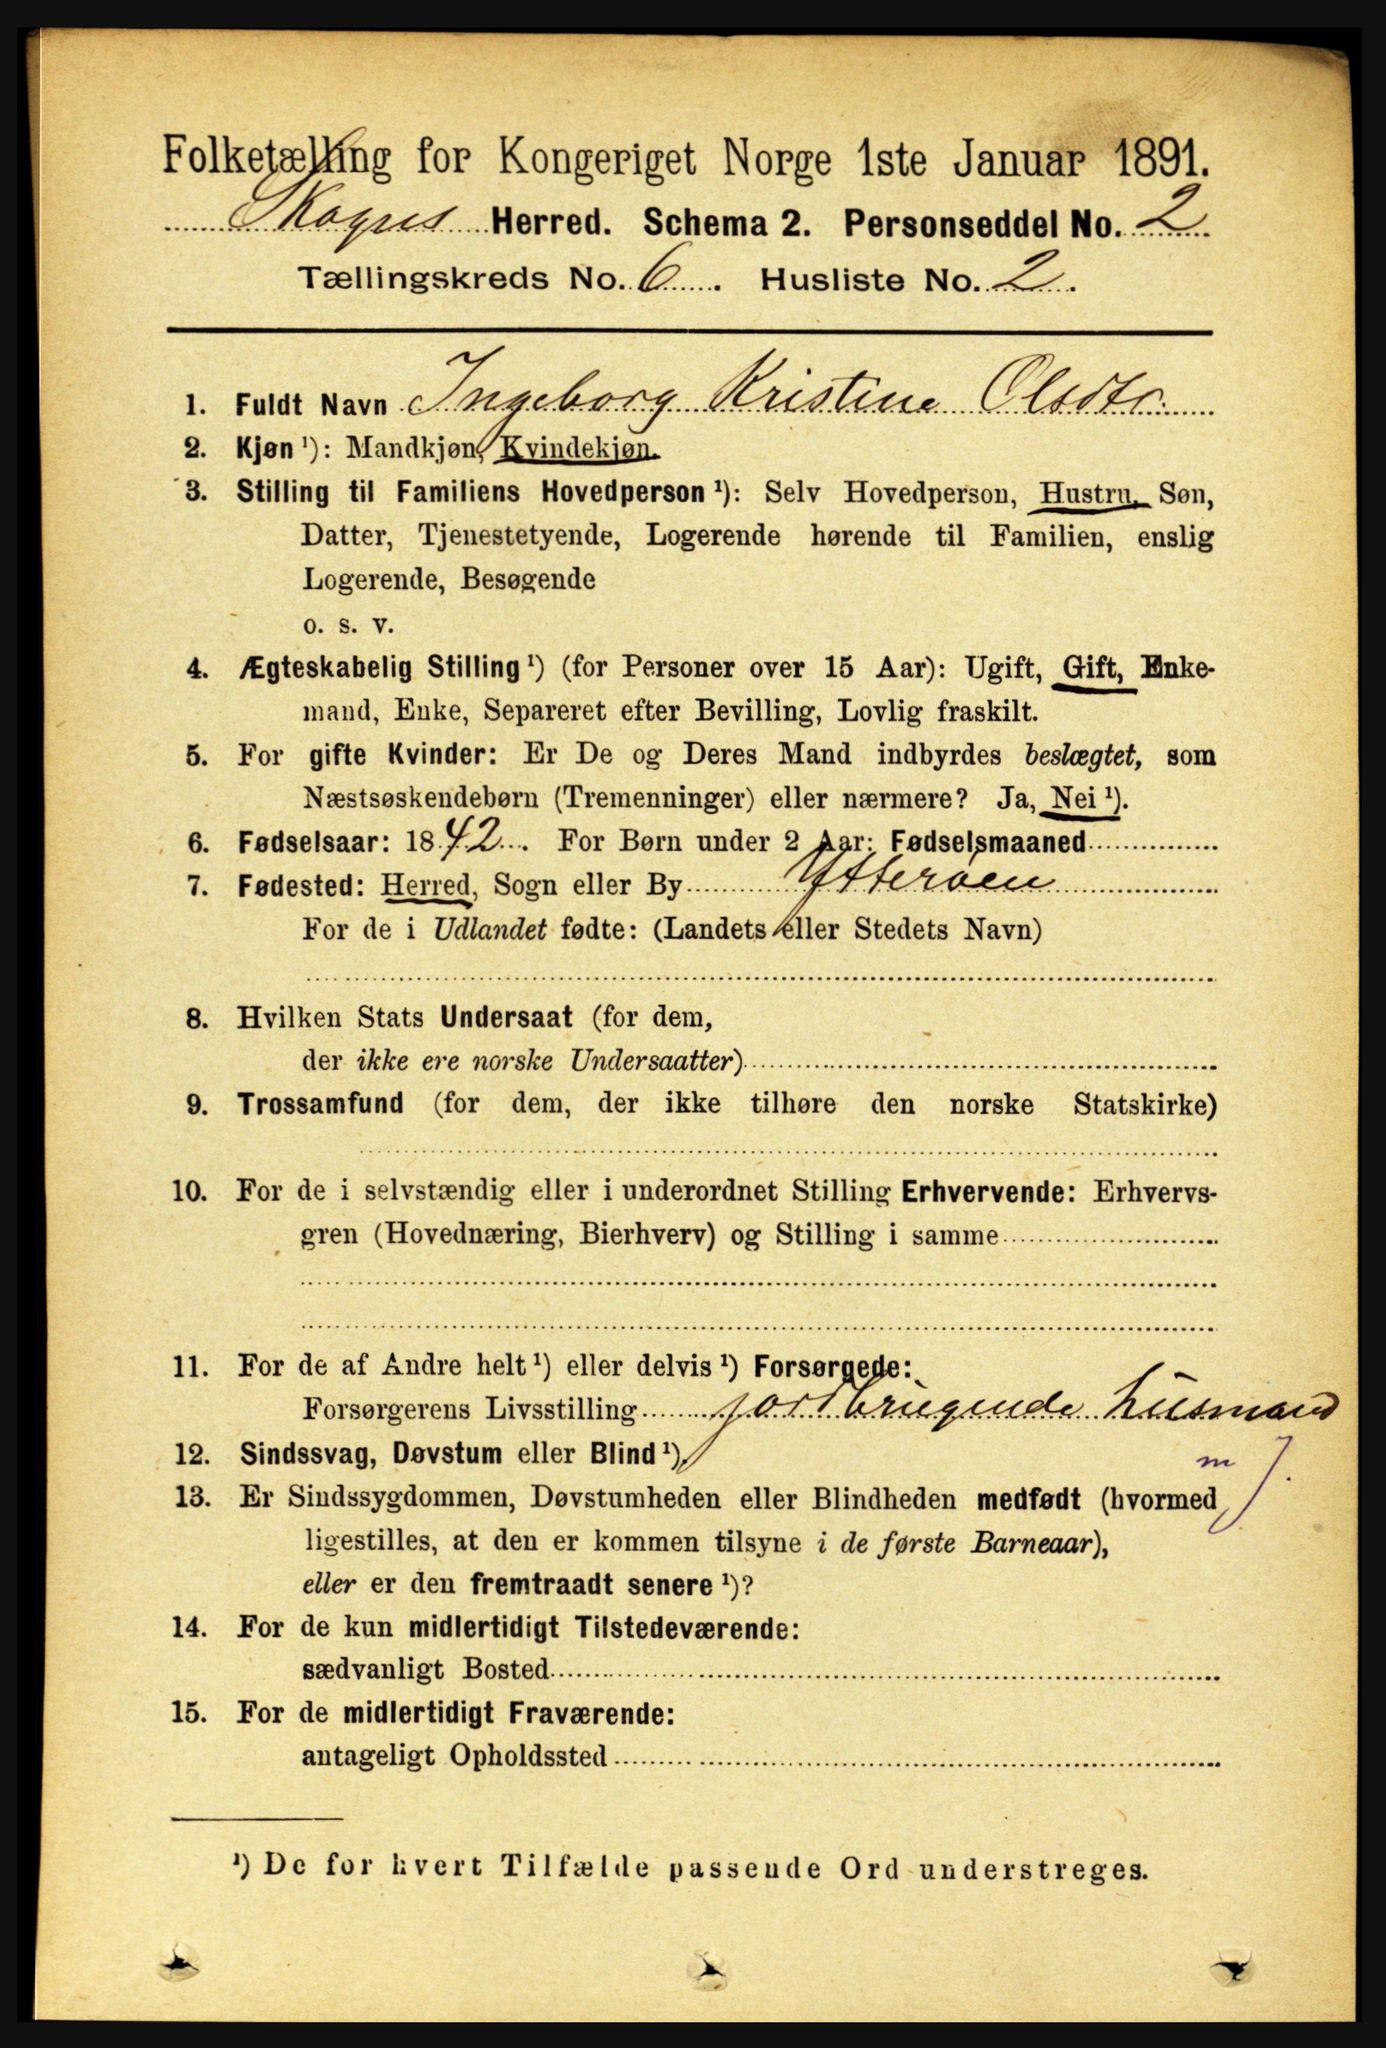 Folketælling for Kongeriget Norge 1ste Januar 1891.
Skogns Herred. Schema 2. Personseddel No. 2
Tællingskreds No. 6. Husliste No. 2.
1. Fuldt Navn Ingeborg Kristine Olsdtr.
2. Kjøn ¹): Mandkjøn, Kvindekjøn.
3. Stilling til Familiens Hovedperson ¹): Selv Hovedperson, Hustru, Søn,
Datter, Tjenestetyende, Logerende hørende til Familien, enslig
Logerende, Besøgende
o. s. v.
4. Ægteskabelig Stilling ¹) (for Personer over 15 Aar): Ugift, Gift, Enke-
mand, Enke, Separeret efter Bevilling, Lovlig fraskilt.
5. For gifte Kvinder: Er De og Deres Mand indbyrdes beslægtet, som
Næstsøskendebørn (Tremenninger) eller nærmere? Ja, Nei ¹).
6. Fødselsaar: 1842. For Børn under 2 Aar: Fødselsmaaned
7. Fødested: Herred, Sogn eller By Ytterøen
For de i Udlandet fødte: (Landets eller Stedets Navn)
8. Hvilken Stats Undersaat (for dem,
der ikke ere norske Undersaatter)
9. Trossamfund (for dem, der ikke tilhøre den norske Statskirke)
10. For de i selvstændig eller i underordnet Stilling Erhvervende: Erhvervs-
gren (Hovednæring, Bierhverv) og Stilling i samme
11. For de af Andre helt ¹) eller delvis ¹) Forsørgede:
Forsørgerens Livsstilling jordbrugende husmand
12. Sindssvag, Døvstum eller Blind ¹). m J.
13. Er Sindssygdommen, Døvstumheden eller Blindheden medfødt (hvormed
ligestilles, at den er kommen tilsyne i de første Barneaar),
eller er den fremtraadt senere ¹)?
14. For de kun midlertidigt Tilstedeværende:
sædvanligt Bosted
15. For de midlertidigt Fraværende:
antageligt Opholdssted
¹) De for hvert Tilfælde passende Ord understreges.